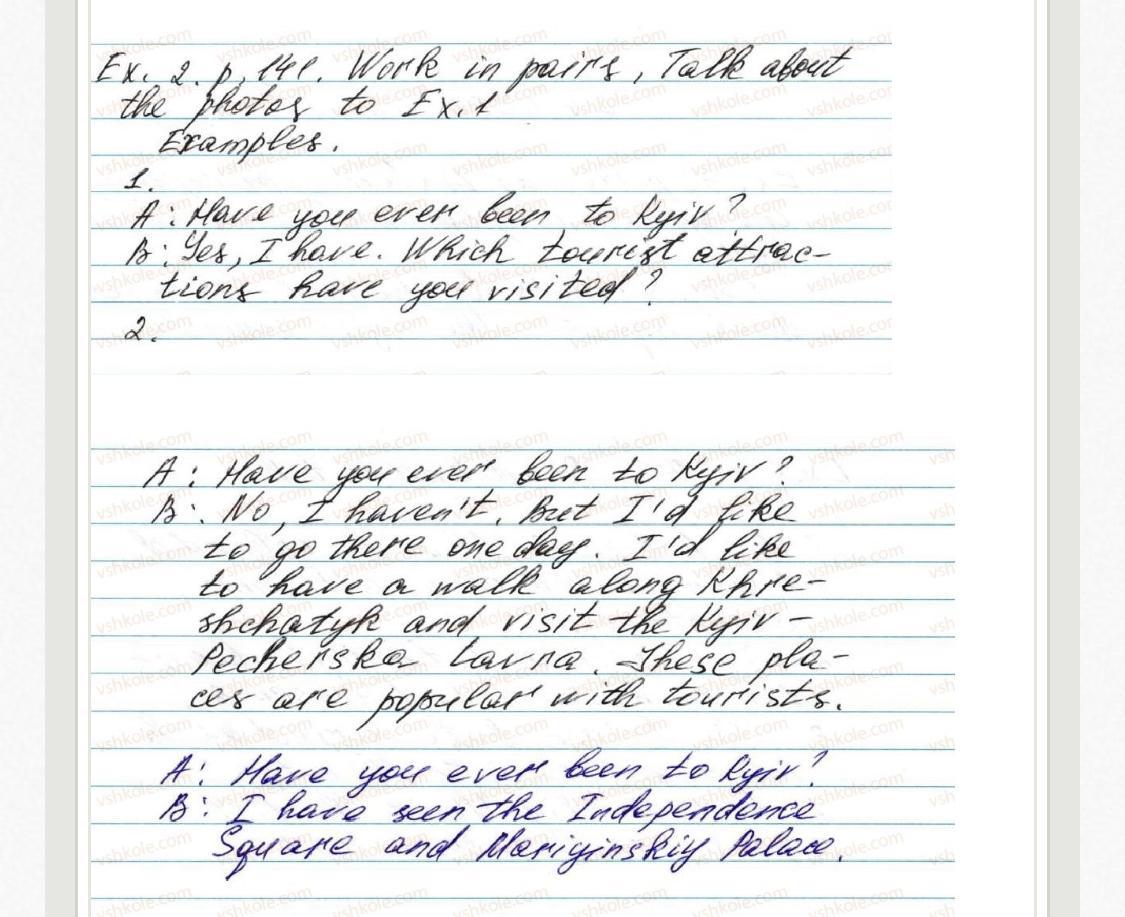 Ex. 2. p. 141. Work in pairs, Talk about
the photos to Ex.1
Examples.
1.
A: Have you ever been to Kyiv?
B: Yes, I have. Which tourist attrac-
tions have you visited?
2.
A: Have you ever been to Kyiv?
B: No, I haven't. But I'd like
to go there one day. I'd like
to have a walk along Khre-
shchatyk and visit the Kyiv-
Pecherska Lavra. These pla-
ces are popular with tourists.
A: Have you ever been to Kyiv?
B: I have seen the Independence
Square and Mariyinskiy Palace.